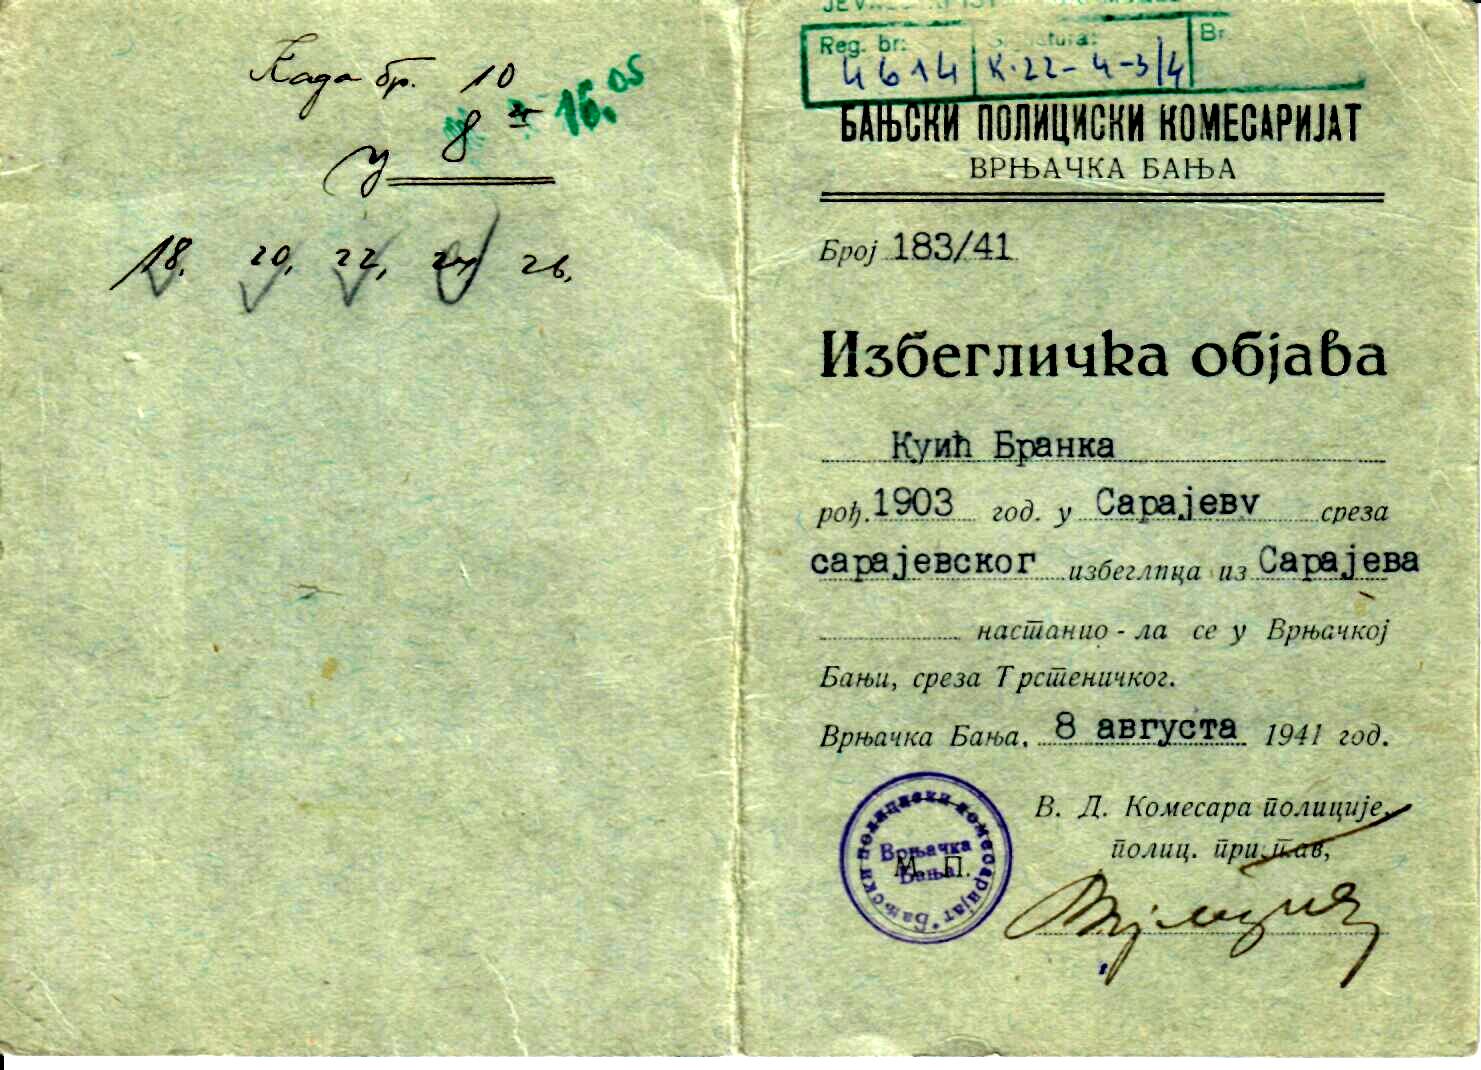 Када бр. 10
у 8 16.05
18. 20, 22, 24 26.
Reg. br: Br
4614 K.22-4-3/4
БАЊСКИ ПОЛИЦИСКИ КОМЕСАРИЈАТ
ВРЊАЧКА БАЊА
Број 183/41
Избегличка објава
Куић Бранка
рођ. 1903 год. у Сарајеву среза
сарајевског избеглица из Сарајева
настанио - ла се у Врњачкој
Бањи, среза Трстеничког.
Врњачка Бања, 8 августа 1941 год.
В. Д. Комесара полиције,
полиц. пристав,
Бањски полициски комесаријат
Врњачка
Бања
М. П.